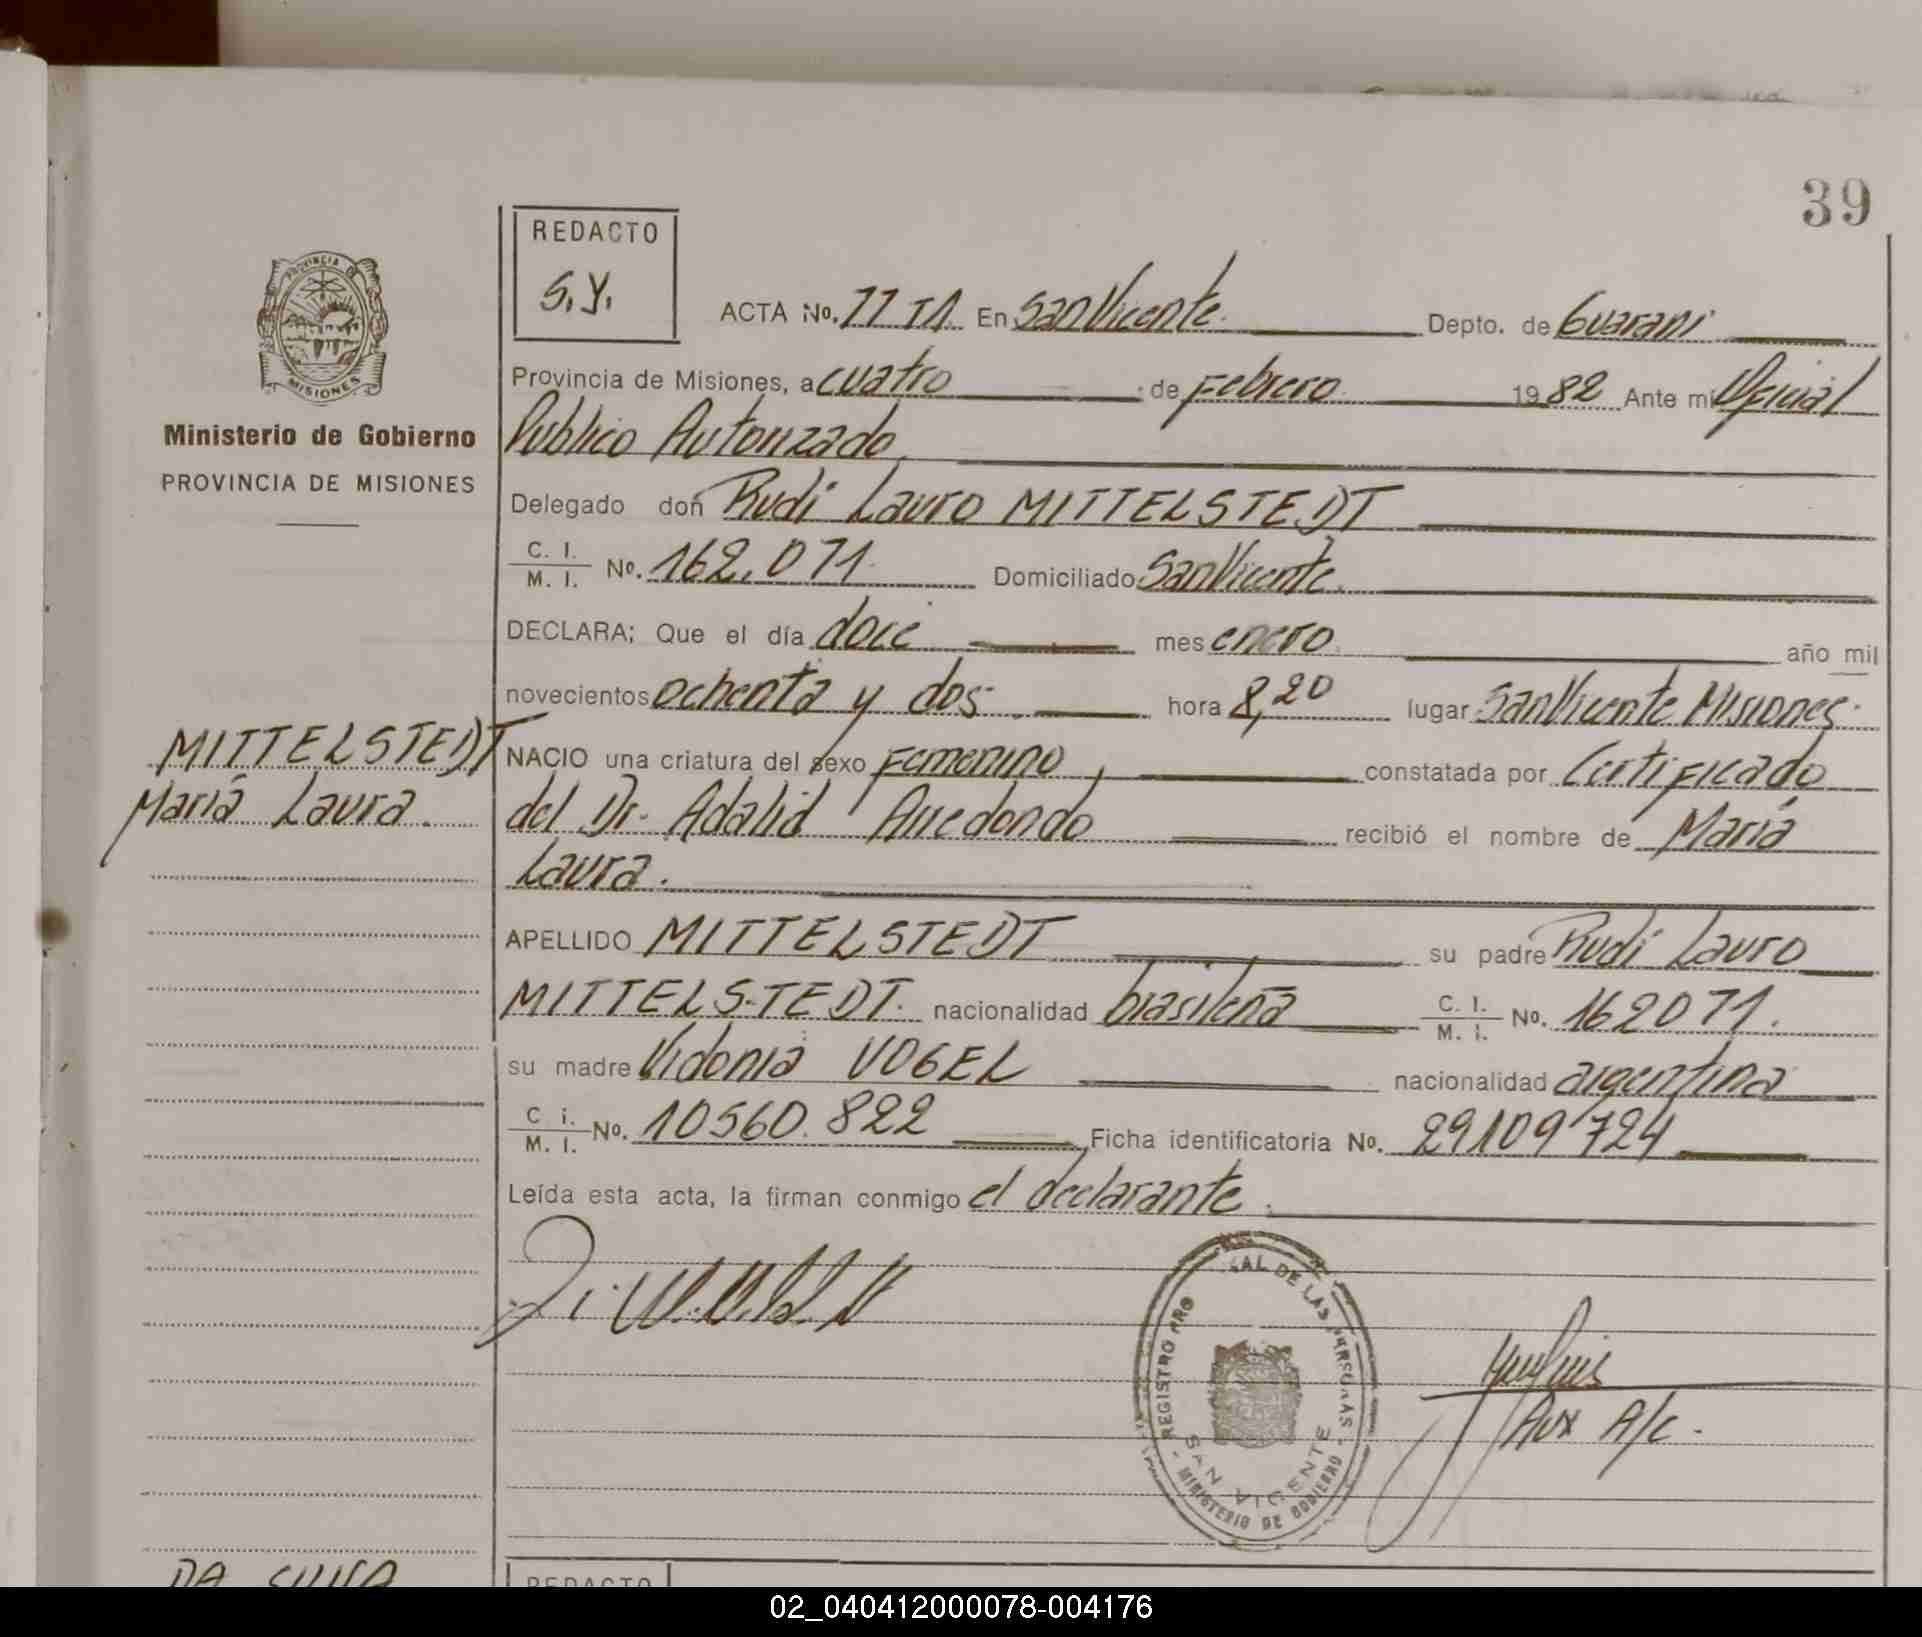 39
REDACTO
S.Y.
PROVINCIA DE
MISIONES
Ministerio de Gobierno
PROVINCIA DE MISIONES
ACTA No. 77 T1 En San Vicente Depto. de Guarani
Provincia de Misiones, a cuatro de Febrero 1982 Ante mi Oficial
Publico Autorizado
Delegado don Rudi Lauro MITTELSTEDT
C. I. / M. I. No. 162.071 Domiciliado San Vicente.
DECLARA; Que el día doce mes enero. año mil
novecientos ochenta y dos hora 8,20 lugar San Vicente Misiones
MITTELSTEDT
Maria Laura.
NACIO una criatura del sexo Femenino, constatada por Certificado
del Dr. Adalid Arredondo recibió el nombre de Maria
Laura.
APELLIDO MITTELSTEDT su padre Rudi Lauro
MITTELSTEDT. nacionalidad brasileña C. I. / M. I. No. 162071.
su madre Vidonia VOGEL nacionalidad argentina
C. I. / M. I. No. 10560.822 Ficha identificatoria No. 29109724
Leída esta acta, la firman conmigo el declarante.
REGISTRO
AL DE LAS PERSONAS
SAN VICENTE
MINISTERIO DE GOBIERNO
Aux A/c.
DA SILVA
REDACTO
02_040412000078-004176